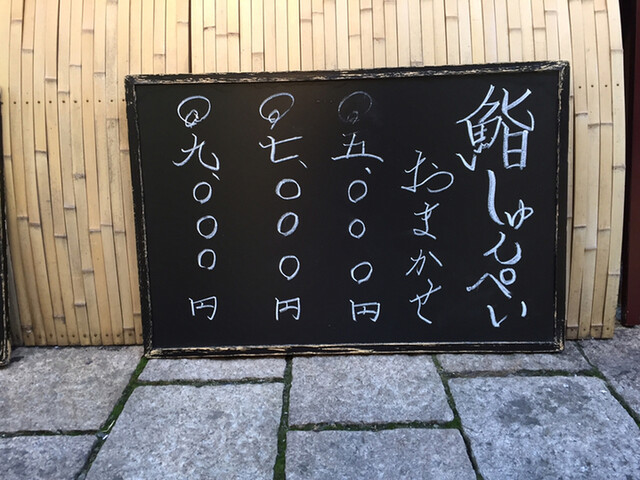 鮨しゅんぺい
おまかせ
@五、〇〇〇円
@七、〇〇〇円
@九、〇〇〇円